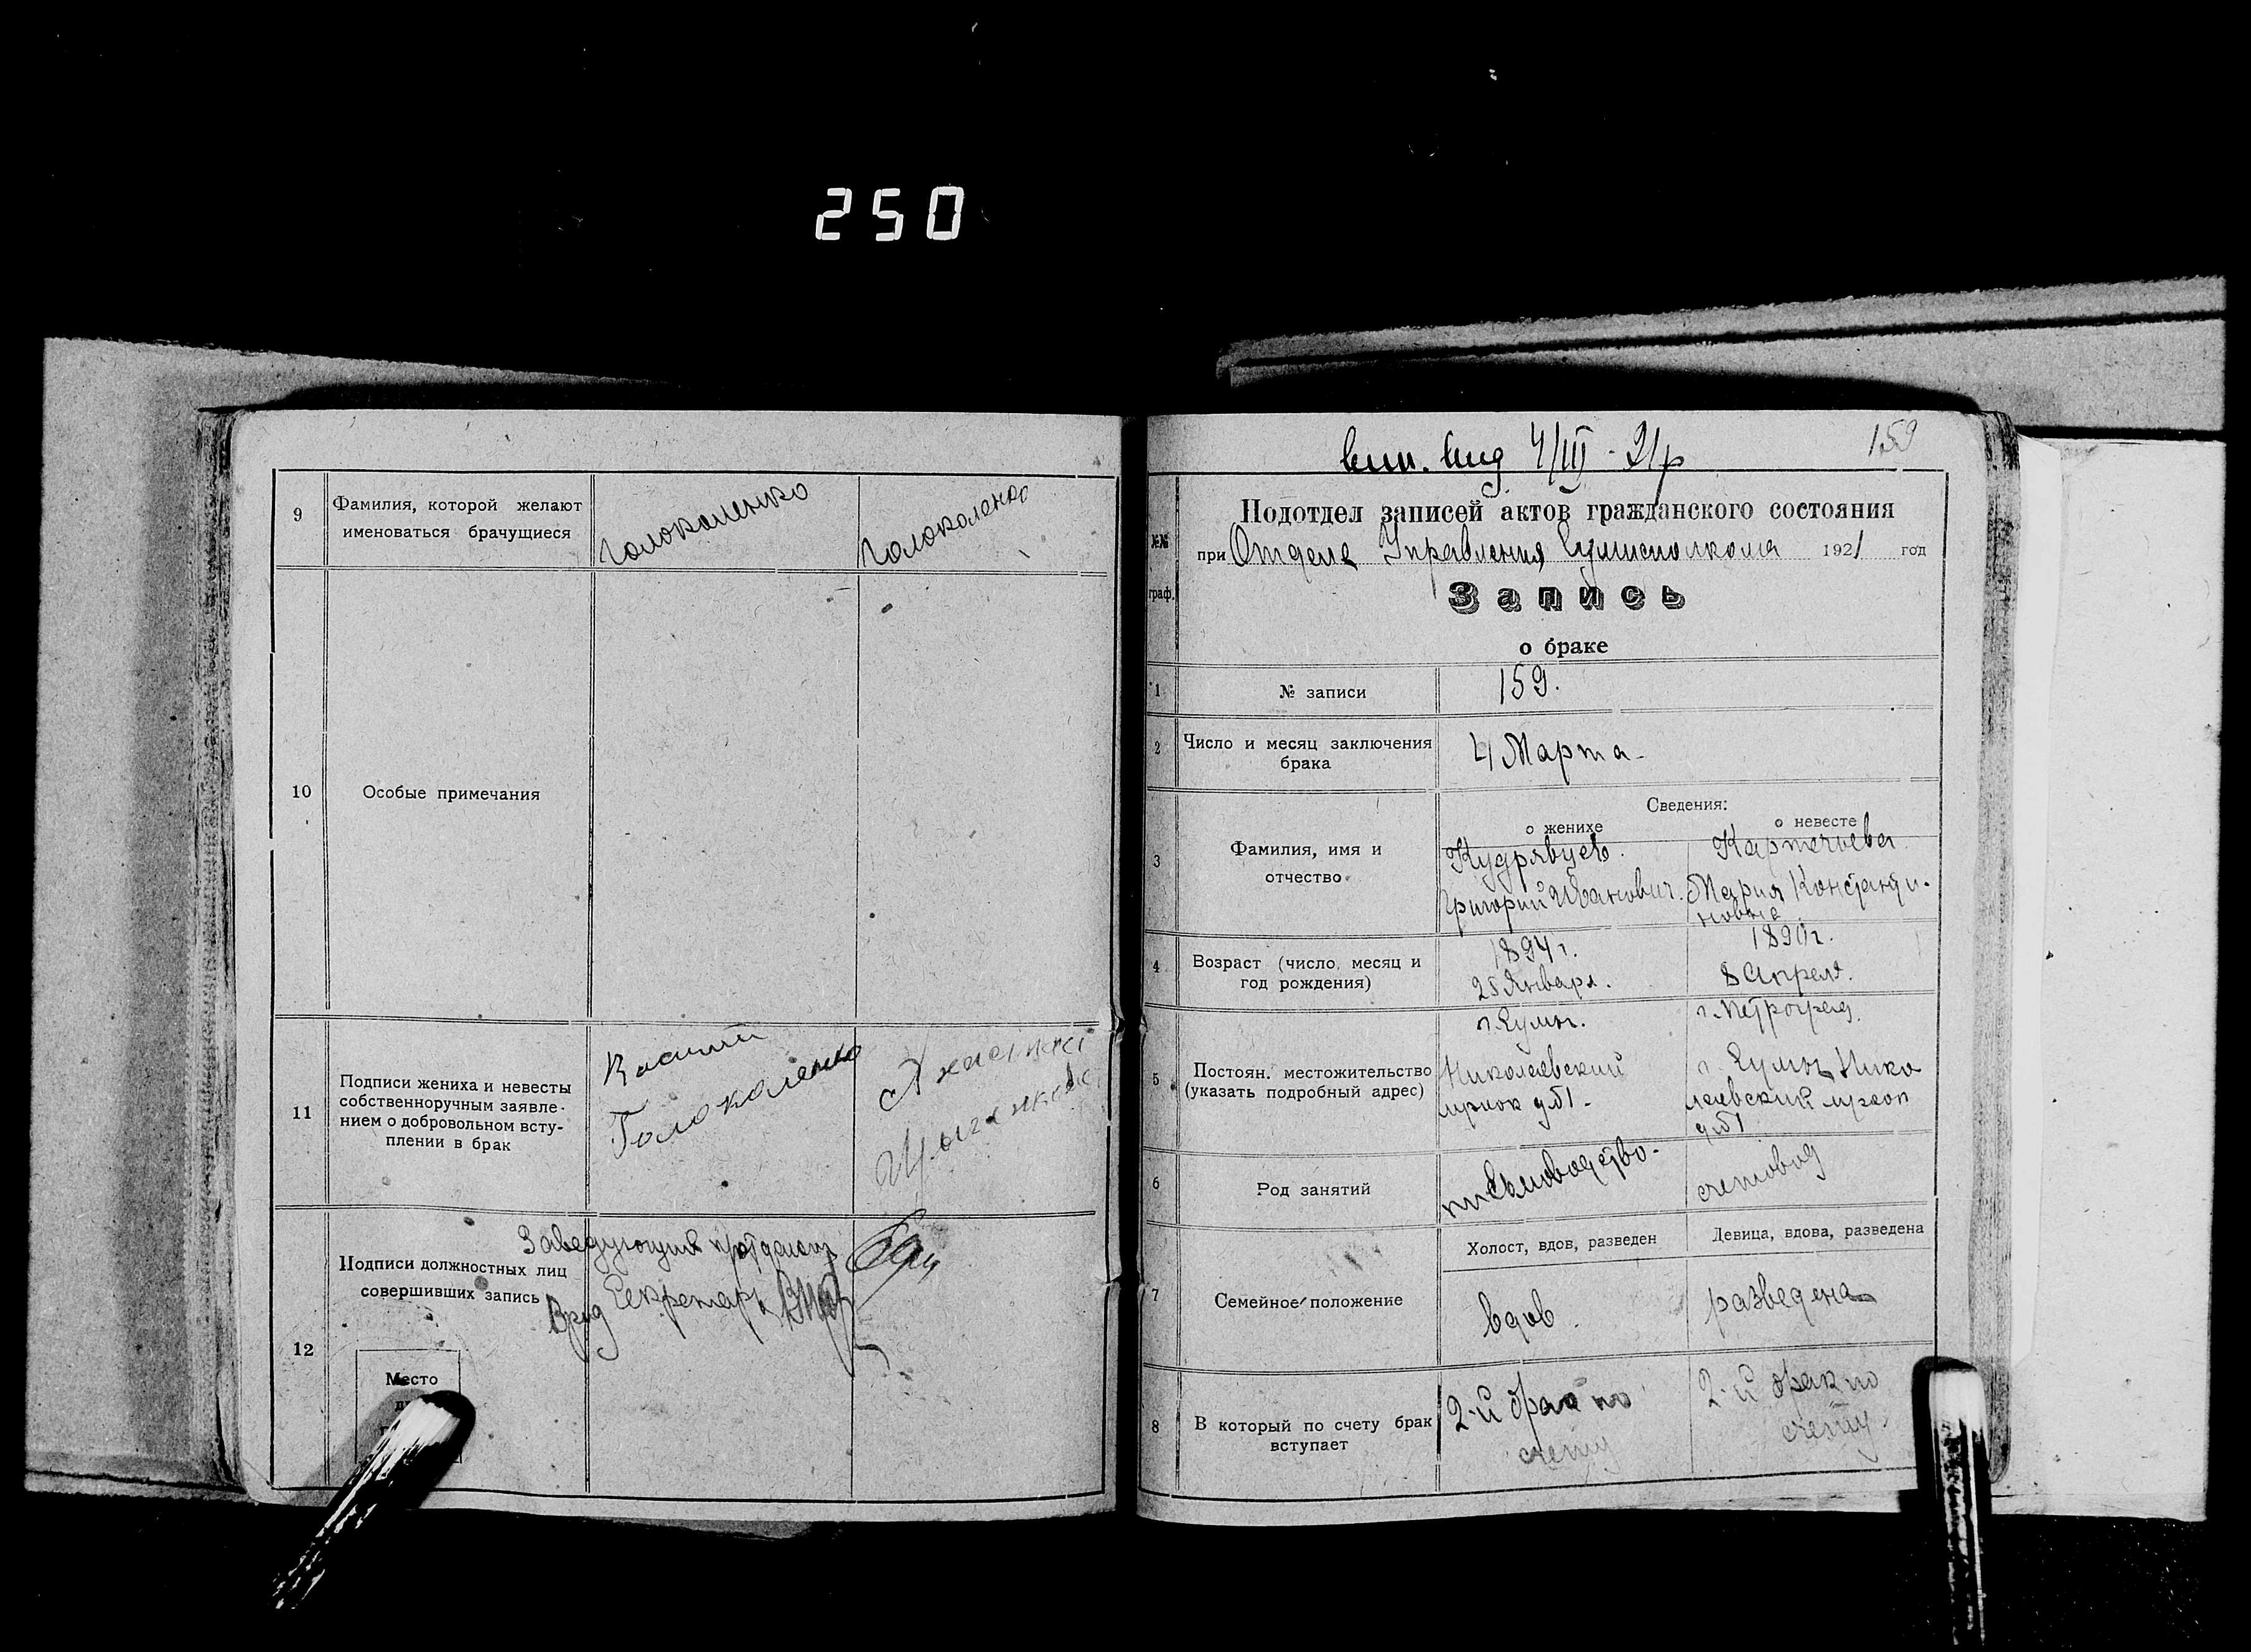 250
9
Фамилия, которой желают
именоваться брачущиеся
Голоколенко
Голоколенко
10
Особые примечания
11
Подписи жениха и невесты
собственноручным заявле-
нием о добровольном всту-
плении в брак
Василий
Голоколенко
12
Подписи должностных лиц
совершивших запись
Заведующий п/отделом
Врид Секретарь
Место
159
№№
граф.
Подотдел записей актов гражданского состояния
при Отделе Управления Сумисполкома 1921 год
Запись
о браке
1
№ записи
159.
2
Число и месяц заключения
брака
4 Марта
Сведения:
о женихе
о невесте
3
Фамилия, имя и
отчество
Кудрявцев
Григорий Иванович.
Мария Константи-
новна
4
Возраст (число, месяц и
год рождения)
1894 г.
25 Января.
1890 г.
8 Апреля.
5
Постоян. местожительство
(указать подробный адрес)
г. Сумы.
Николаевский
г. Петроград.
г. Сумы Нико
лаевский
6
Род занятий
письмоводство.
счетовод
7
Семейное положение
Холост, вдов, разведен
Девица, вдова, разведена
вдов.
разведена
8
В который по счету брак
вступает
2-й брак по
счету
2-й брак по
счету.